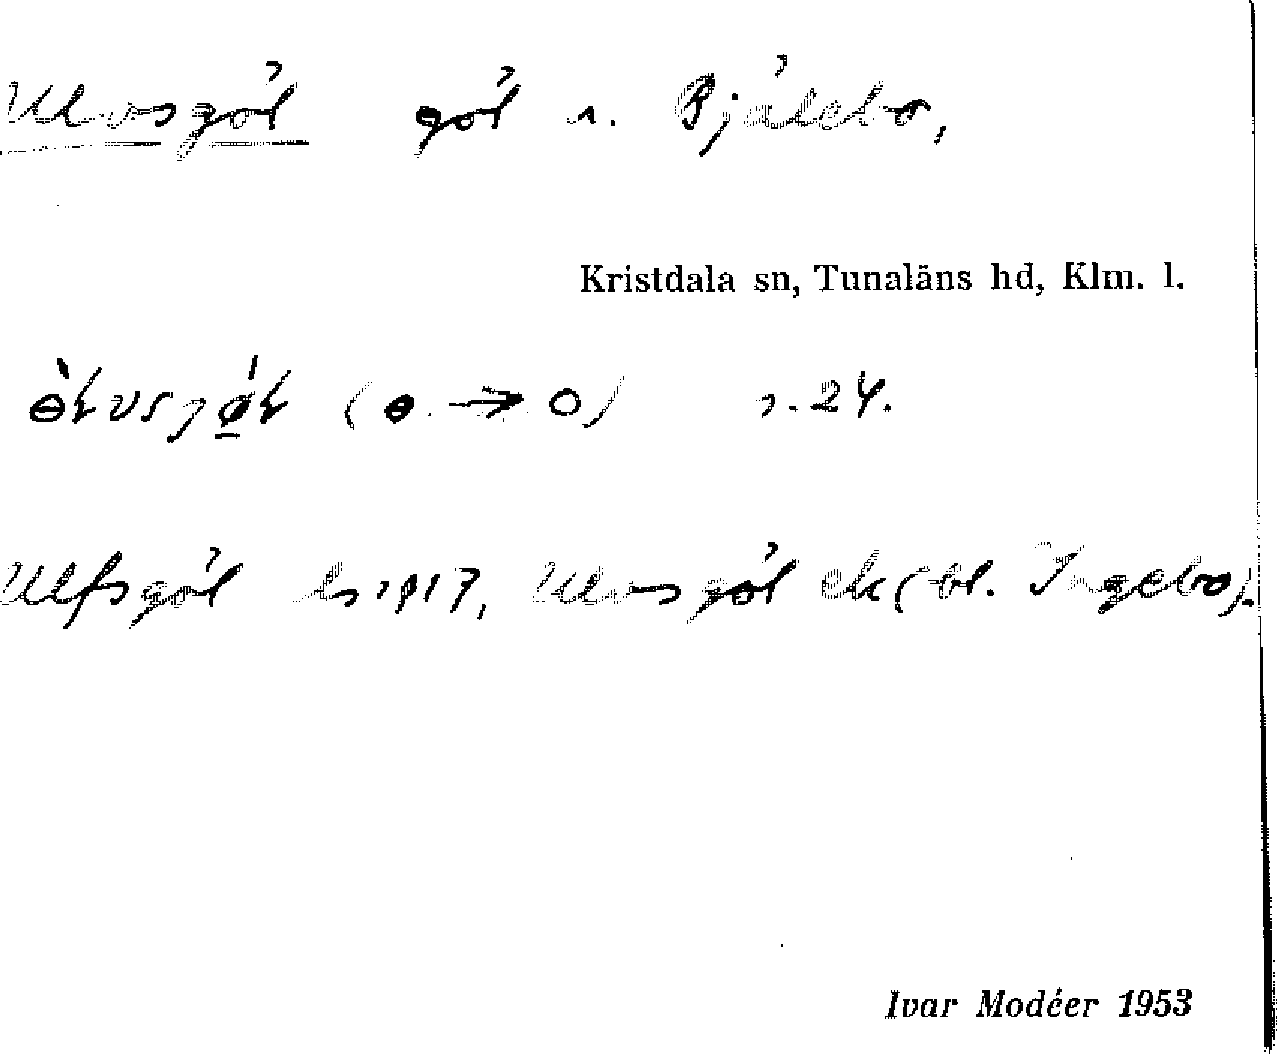 Ulvsgöl göl n. Bjälebo,
Kristdala sn, Tunaläns hd, Klm. l.
(ɵ → o) 24.
Ulfsgöl 1917, Ulvsgöl ek (bl. Ingebo).
Ivar Modéer 1953